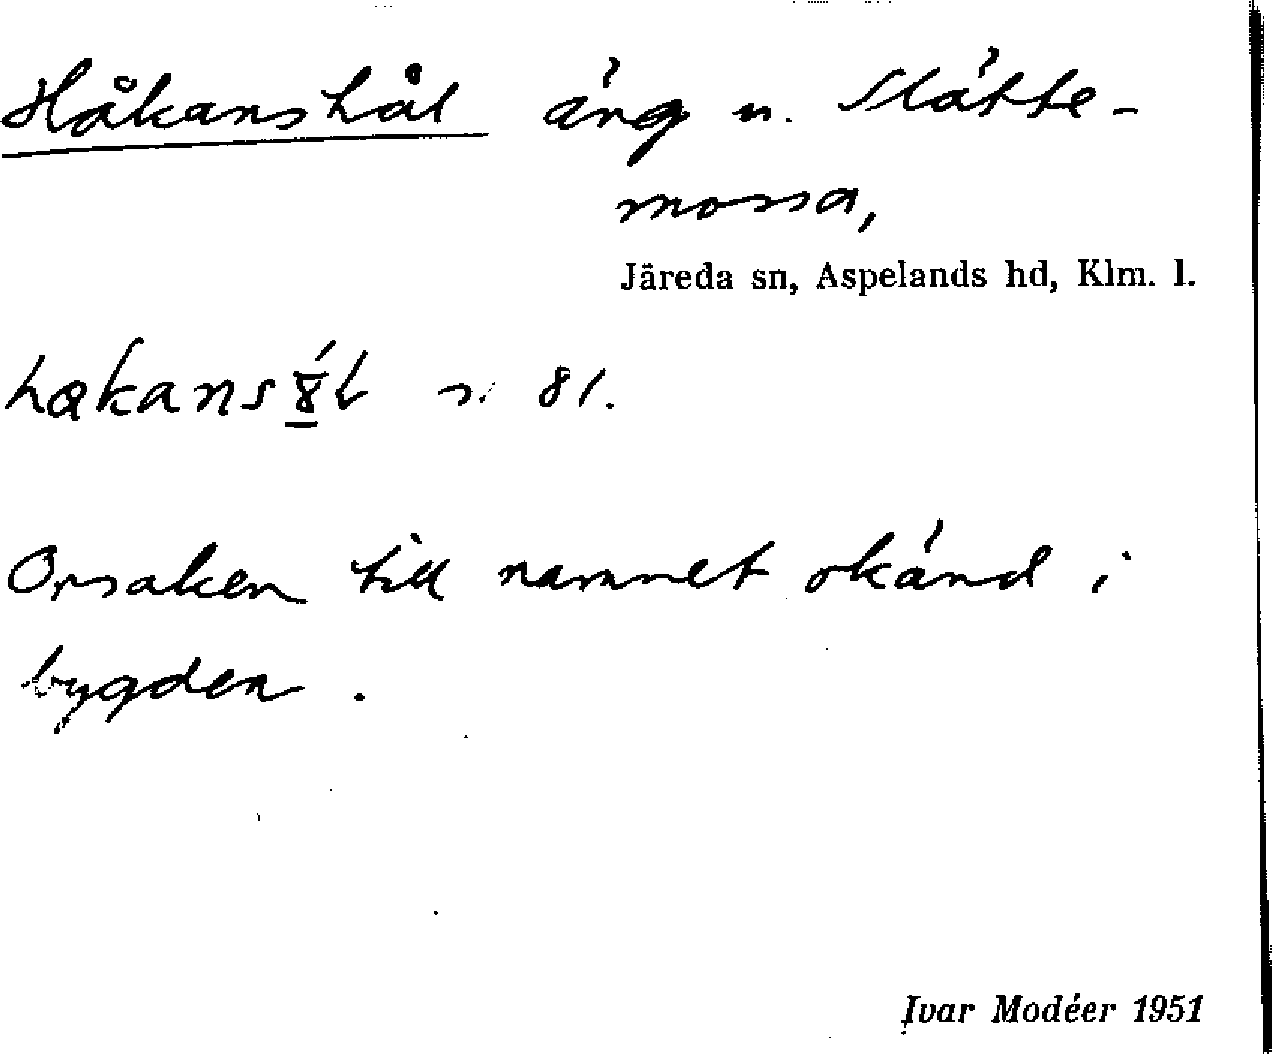 Håkanshål äng u. Slätte-
mossa,
Järeda sn, Aspelands hd, Klm. l.
81.
Orsaken till namnet okänd i
bygden.
Ivar Modéer 1951